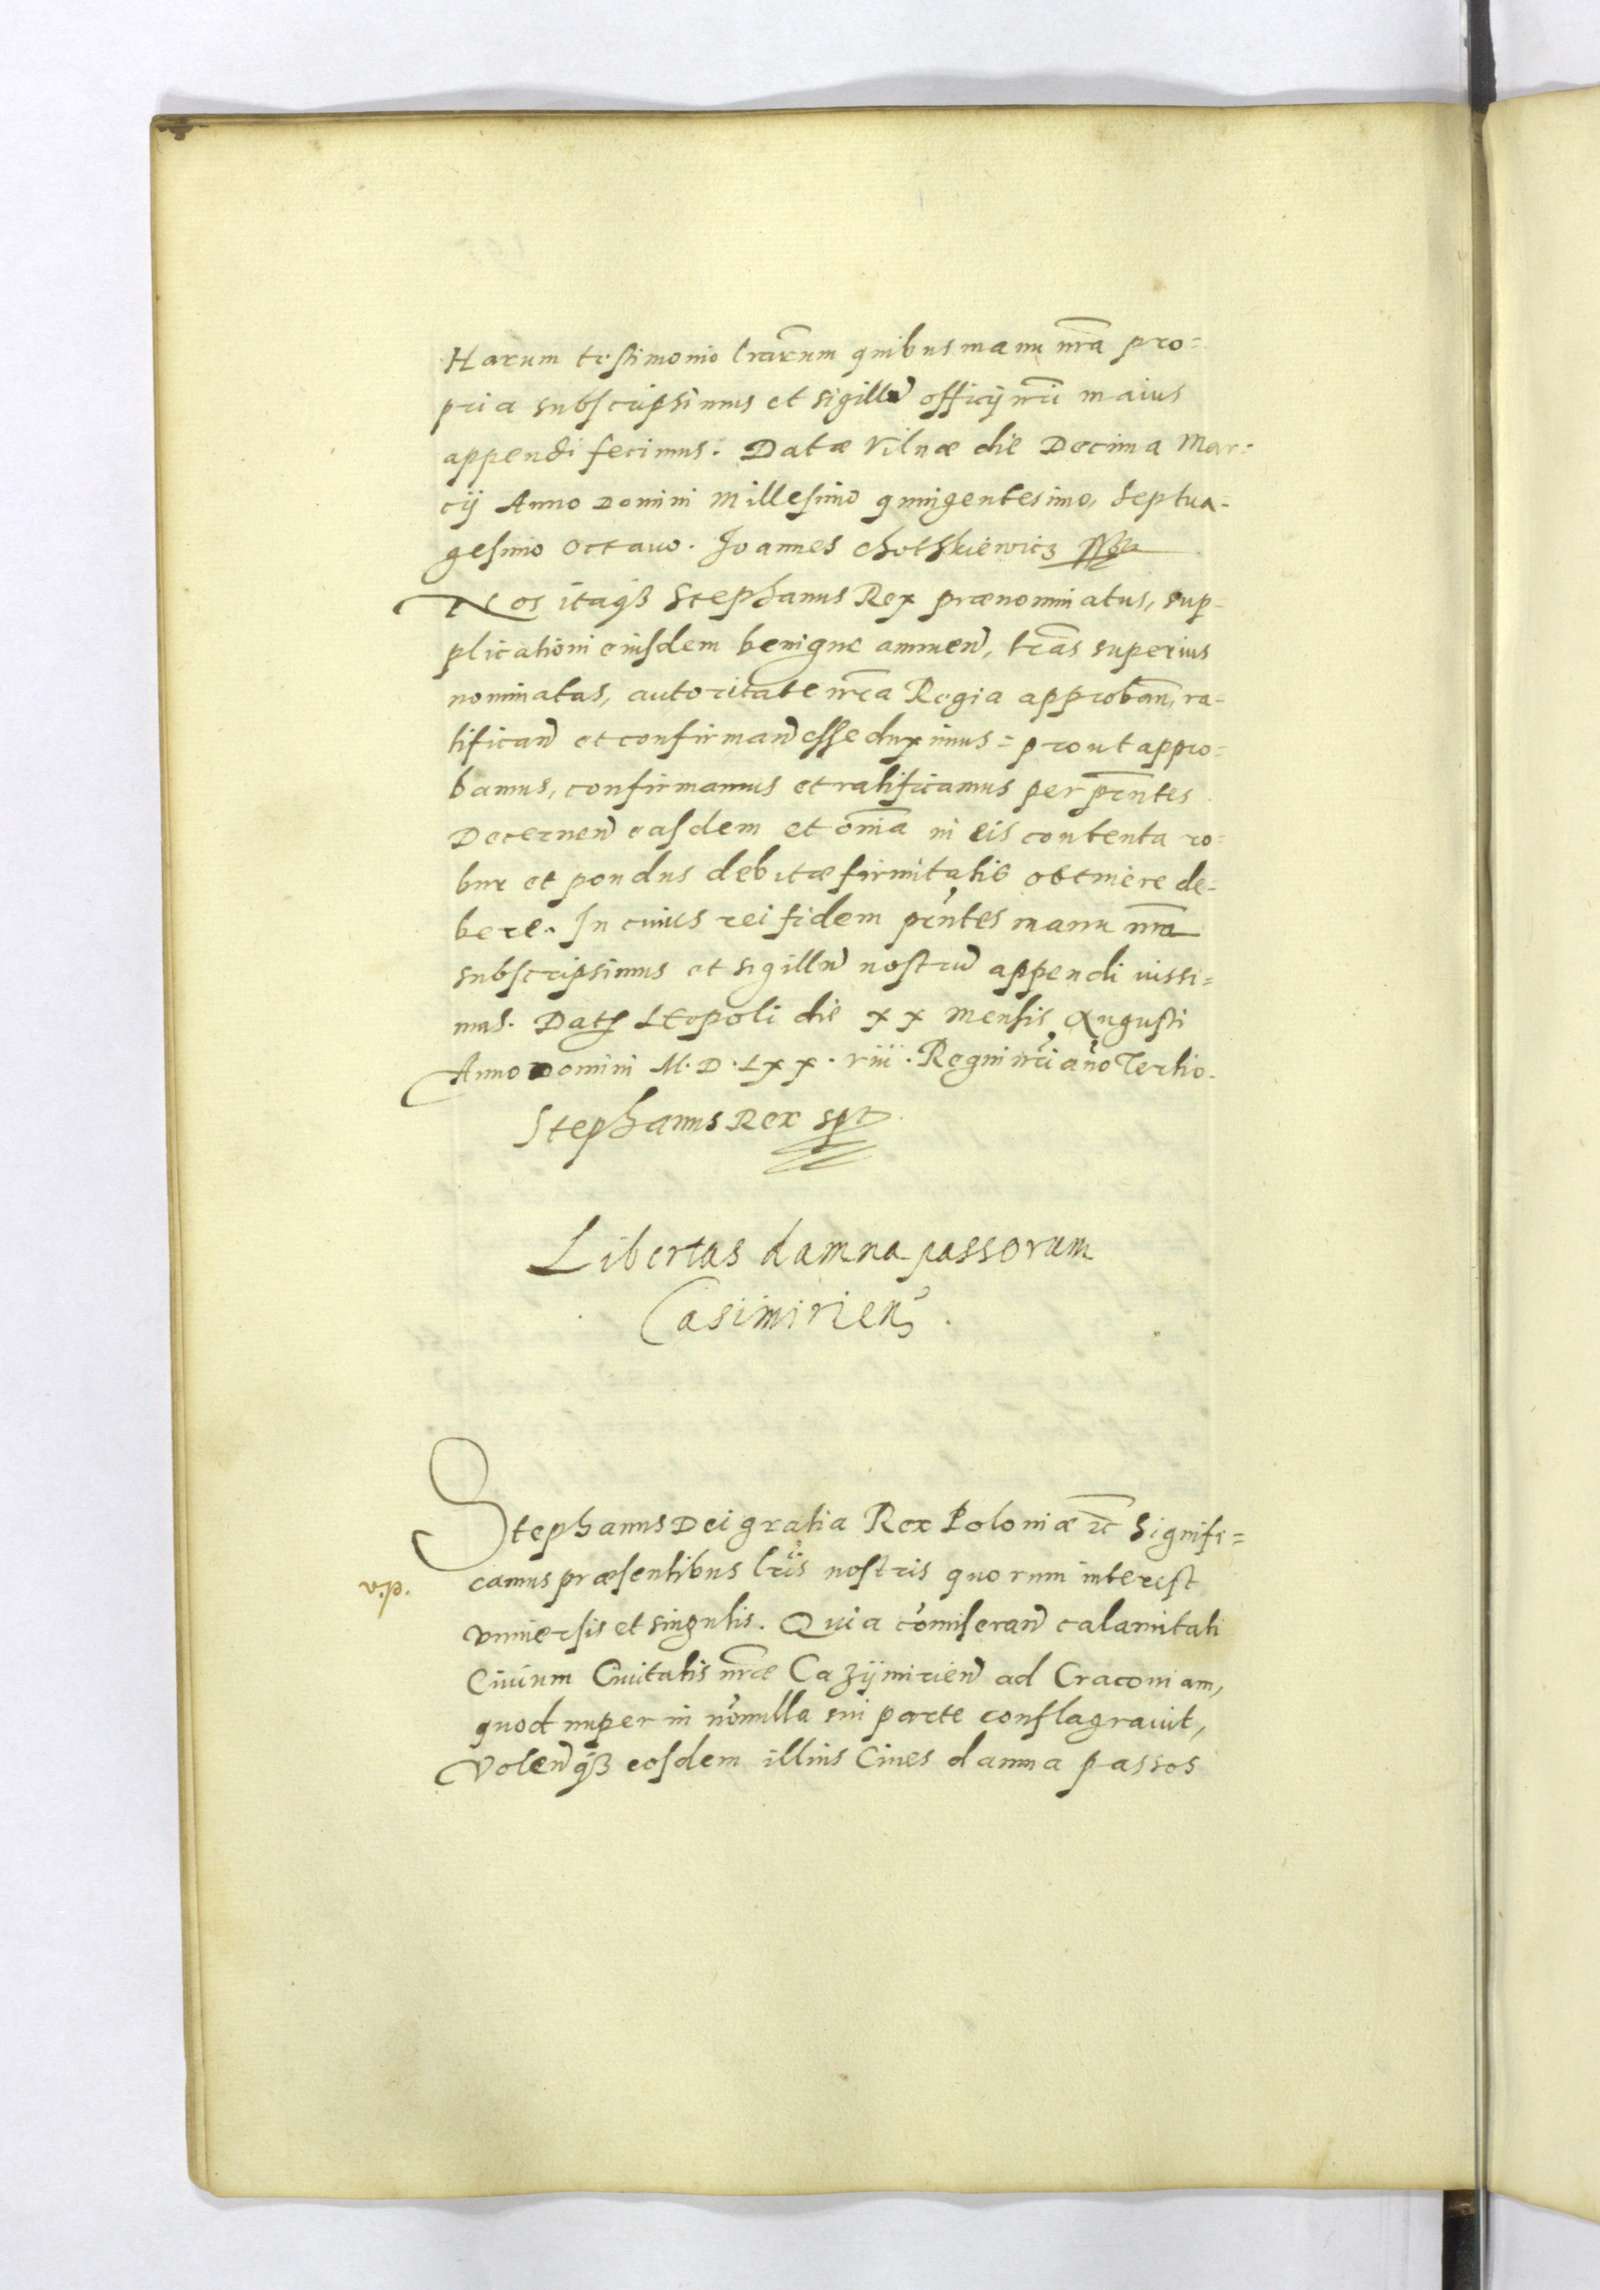 Harum testimonio lrarum quibus manu nra pro=
pria subscripsimus et sigillũ officij nri maius
appendi fecimus. Datæ Vilnæ die Decima Mar=
cij Anno Domini Millesimo quingentesimo, Septua-
gesimo octavo. Joannes Chotkiewicz
Nos itaqȝ Stephanus Rex prænominatus, sup-
plicationi eiusdem benigne annuen̄, lr̃as superius
nominatas, autoritate nr̃a Regia approban̄, ra-
tifican̄ et confirman̄ esse duximus = prout appro=
bamus, confirmamus et ratificamus per pr̃ntes
Decernen̄ easdem et om̃ia in eis contenta ro=
bur et pondus debitæ firmitatis obtinere de-
bere. In cuius rei fidem pr̃ntes manu nr̃a
subscripsimus et sigillũ nostrũ appendi iussi=
mus. Datȩ Leopoli die xx mensis Augusti
Anno Domini M.D.Lxx.viii. Regni nr̃i año Tertio.
Stephanus Rex sst
Libertas damna passorum
Casimirien̄.
Stephanus Dei gratia Rex Poloniæ ꝛc̃ Signifi=
camus præsentibus lr̃is nostris quorum interest
v.p.
vniuersis et singulis. Quia com̃iseran̄ calamitati
Ciuium Ciuitatis nr̃æ Cazijmirien̄ ad Cracouiam,
quod nuper in nõnulla sui parte conflagrauit,
Volen̄qȝ eosdem illius Ciues damna passos